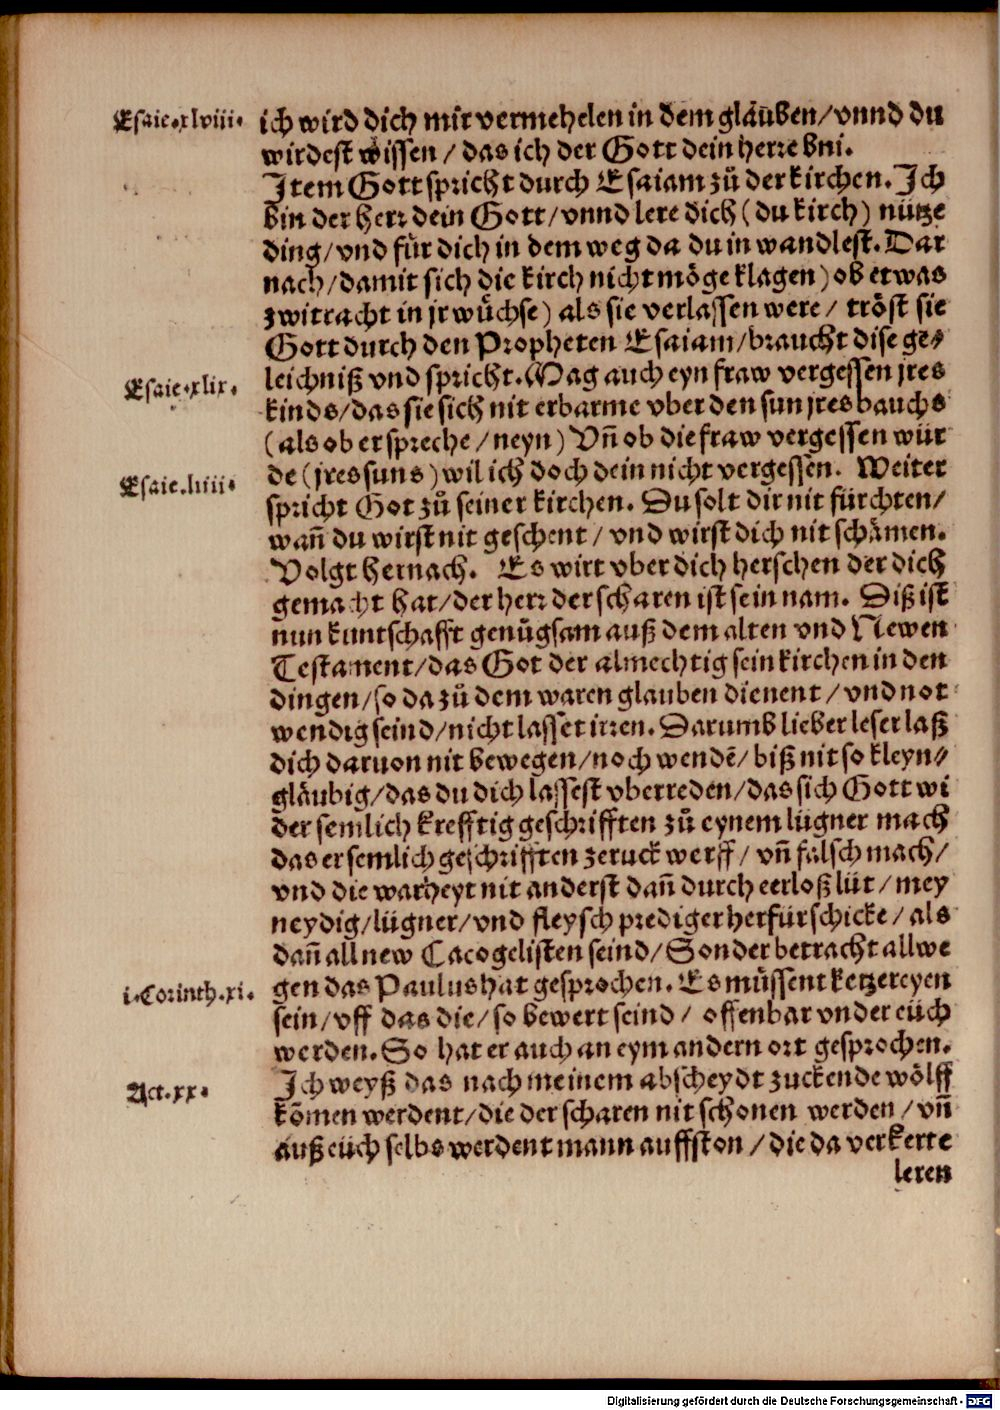 Esaie.xlviii.
ich wird dich mir vermehelen in dem gläuben/vnnd du
wirdest wissen / das ich der Gott dein herre bni.
Item Gott spricht durch Esaiam zů der kirchen. Ich
bin der herr dein Gott/vnnd lere dich (du kirch) nütze
ding/vnd für dich in dem weg da du in wandlest. Dar
nach/damit sich die kirch nicht möge klagen) ob etwas
zwitracht in jr wůchse) als sie verlassen were/ tröst sie
Gott durch den Propheten Esaiam/braucht dise ge⸗
Esaie.xlix.
leichniß vnd spricht. Mag auch eyn fraw vergessen jres
kinds/das sie sich nit erbarme vber den sun jres bauchs
(als ob er spreche/neyn) Vñ ob die fraw vergessen wür
Esaie.liiii.
de (jres suns) wil ich doch dein nicht vergessen. Weiter
spricht Got zů seiner kirchen. Du solt dir nit fürchten/
wañ du wirst nit geschent / vnd wirst dich nit schämen.
Volgt hernach. Es wirt vber dich herschen der dich
gemacht hat/der herr der scharen ist sein nam. Diß ist
nun kuntschafft genůgsam auß dem alten vnd Newen
Testament/das Got der almechtig sein kirchen in den
dingen/so da zů dem waren glauben dienent / vnd not
wendig seind/nicht lasset irren. Darumb lieber leser laß
dich daruon nit bewegen/noch wendē/ biß nit so kleyn⸗
gläubig/das du dich lassest vberreden/das sich Gott wi
der semlich krefftig geschrifften zů eynem lügner mach
das er semlich geschrifften zeruck werff/ vñ falsch mach/
vnd die warheyt nit anderst dañ durch eerloß lüt / mey
neydig/lügner/vnd fleysch prediger herfür schicke/ als
dañ all new Cacogelisten seind/Sonder betracht allwe
i.Corinth.xi.
gen das Paulus hat gesprochen. Es müssent ketzereyen
sein/vff das die/so bewert seind/ offenbar vnder eüch
werden. So hat er auch an eym andern ort gesprochen.
Act.xx.
Ich weyß das nach meinem abscheydt zuckende wölff
kōmen werdent/die der scharen nit schonen werden/vñ
auß eüch selbs werdent mann auffston / die da verkerte
leren
Digitalisierung gefördert durch die Deutsche Forschungsgemeinschaft - DFG